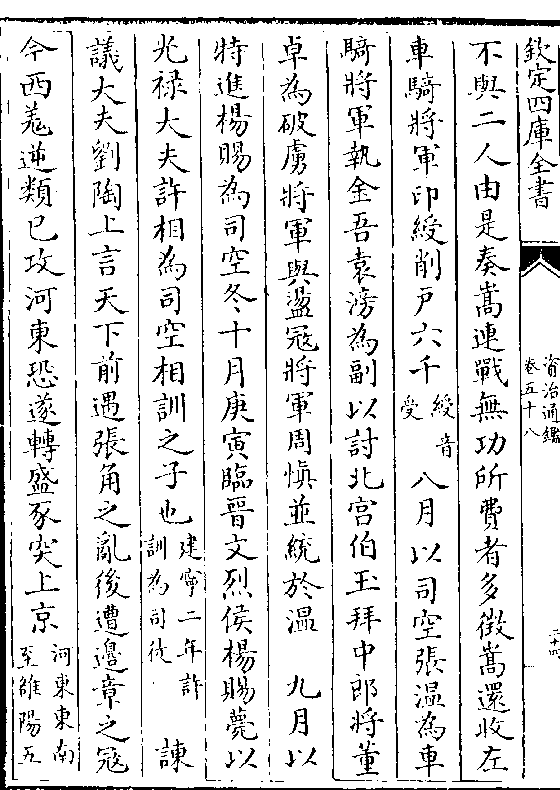 欽定四庫全書
資治通鑑
卷五十八
二十四
不與二人由是奏嵩連戰無功所費者多徵嵩還收左
車騎將軍印綬削戶六千綬音受八月以司空張溫為車
騎將軍執金吾袁滂為副以討北宮伯玉拜中郎將董
卓為破虜將軍與盪寇將軍周慎並統於溫 九月以
特進楊賜為司空冬十月庚寅臨晉文烈侯楊賜薨以
光禄大夫許相為司空相訓之子也建寧二年許訓為司徒 諫
議大夫劉陶上言天下前遇張角之亂後遭邊章之寇
今西羗逆類已攻河東恐遂轉盛豕突上京河東東南至雒陽五